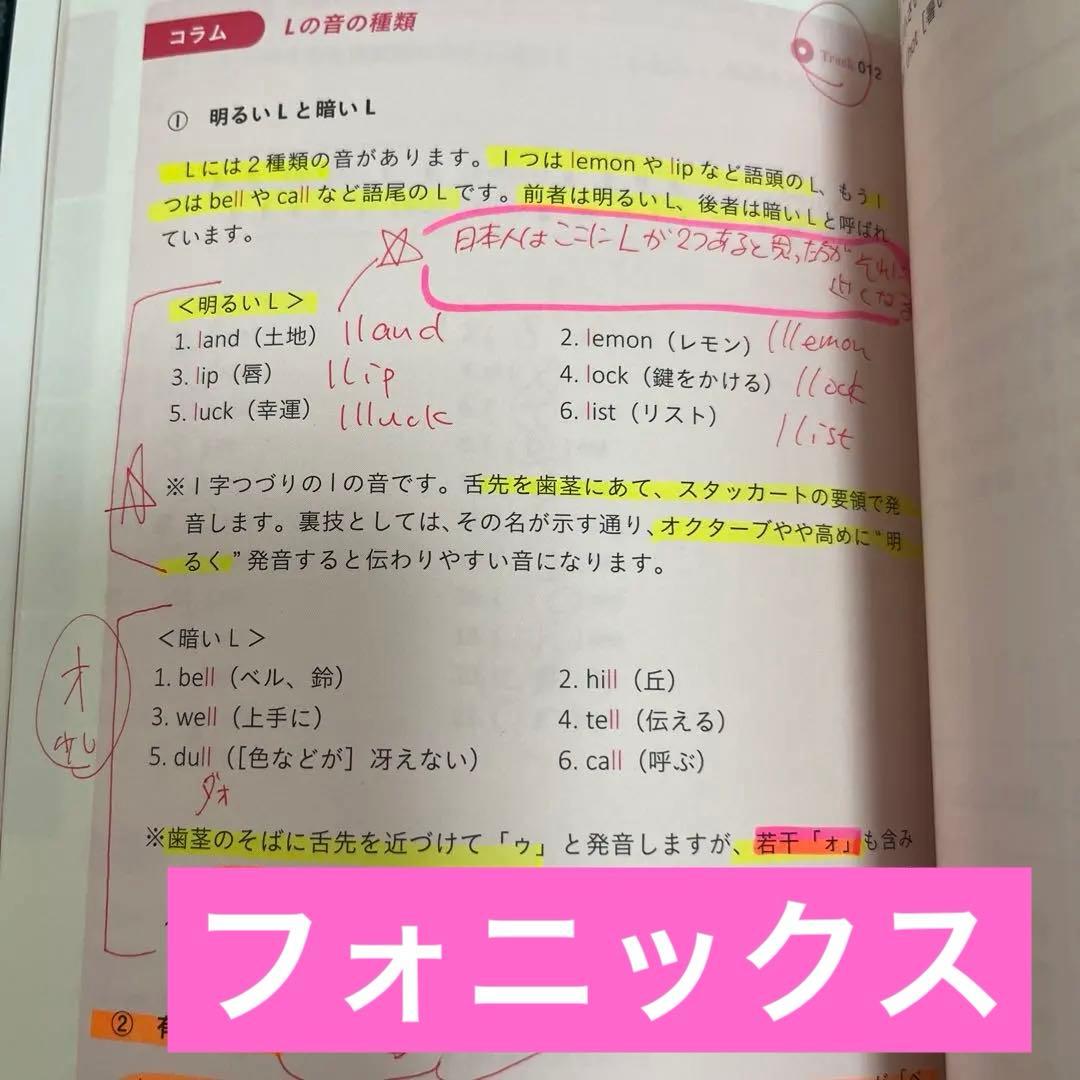 コラム Lの音の種類
Track 012
① 明るいLと暗いL
Lには2種類の音があります。1つはlemonやlipなど語頭のL、もう1
つはbellやcallなど語尾のLです。前者は明るいL、後者は暗いLと呼ばれ
ています。
日本人はここにLが2つあると思った方が
それに
近くなる
＜明るいL＞
1. land（土地） lland
2. lemon（レモン） lllemon
3. lip（唇） llip
4. lock（鍵をかける） llock
5. luck（幸運） llluck
6. list（リスト）
llist
※1字つづりのlの音です。舌先を歯茎にあて、スタッカートの要領で発
音します。裏技としては、その名が示す通り、オクターブやや高めに“明
るく”発音すると伝わりやすい音になります。
＜暗いL＞
オ
少し
1. bell（ベル、鈴）
2. hill（丘）
3. well（上手に）
4. tell（伝える）
5. dull（[色などが] 冴えない）
6. call（呼ぶ）
ダォ
※歯茎のそばに舌先を近づけて「ゥ」と発音しますが、若干「ォ」も含み
フォニックス
② 有